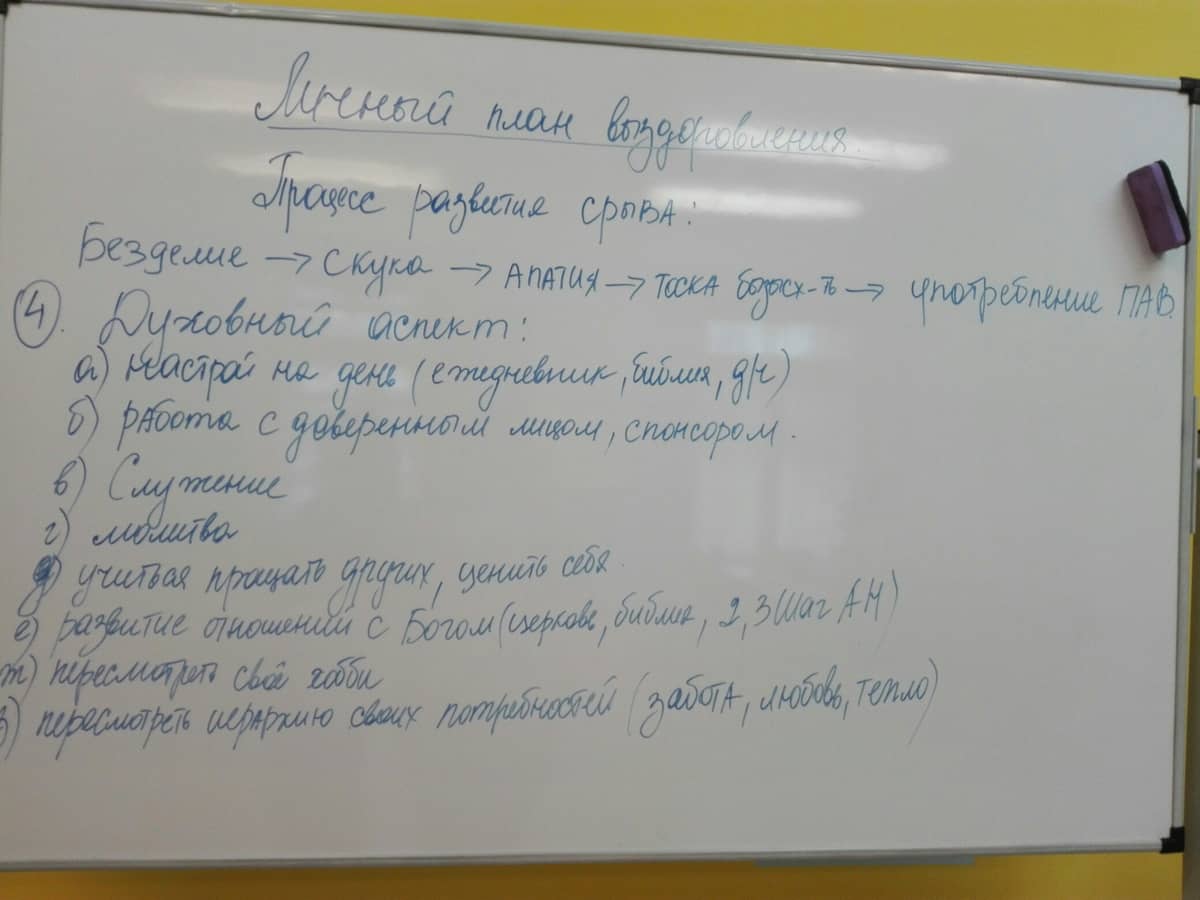 Личный план выздоровления.
Процесс развития срыва:
Безделие → скука → апатия → тоска безысх-ть → употребление ПАВ.
4. Духовный аспект:
а) настрой на день (ежедневник, библия, д/ч)
б) работа с доверенным лицом, спонсором.
в) Служение
г) молитва
д) учиться прощать других, ценить себя.
е) развитие отношений с Богом (церковь, библия, 2, 3 шаг АН)
ж) пересмотреть своё хобби
з) пересмотреть иерархию своих потребностей (забота, любовь, тепло)